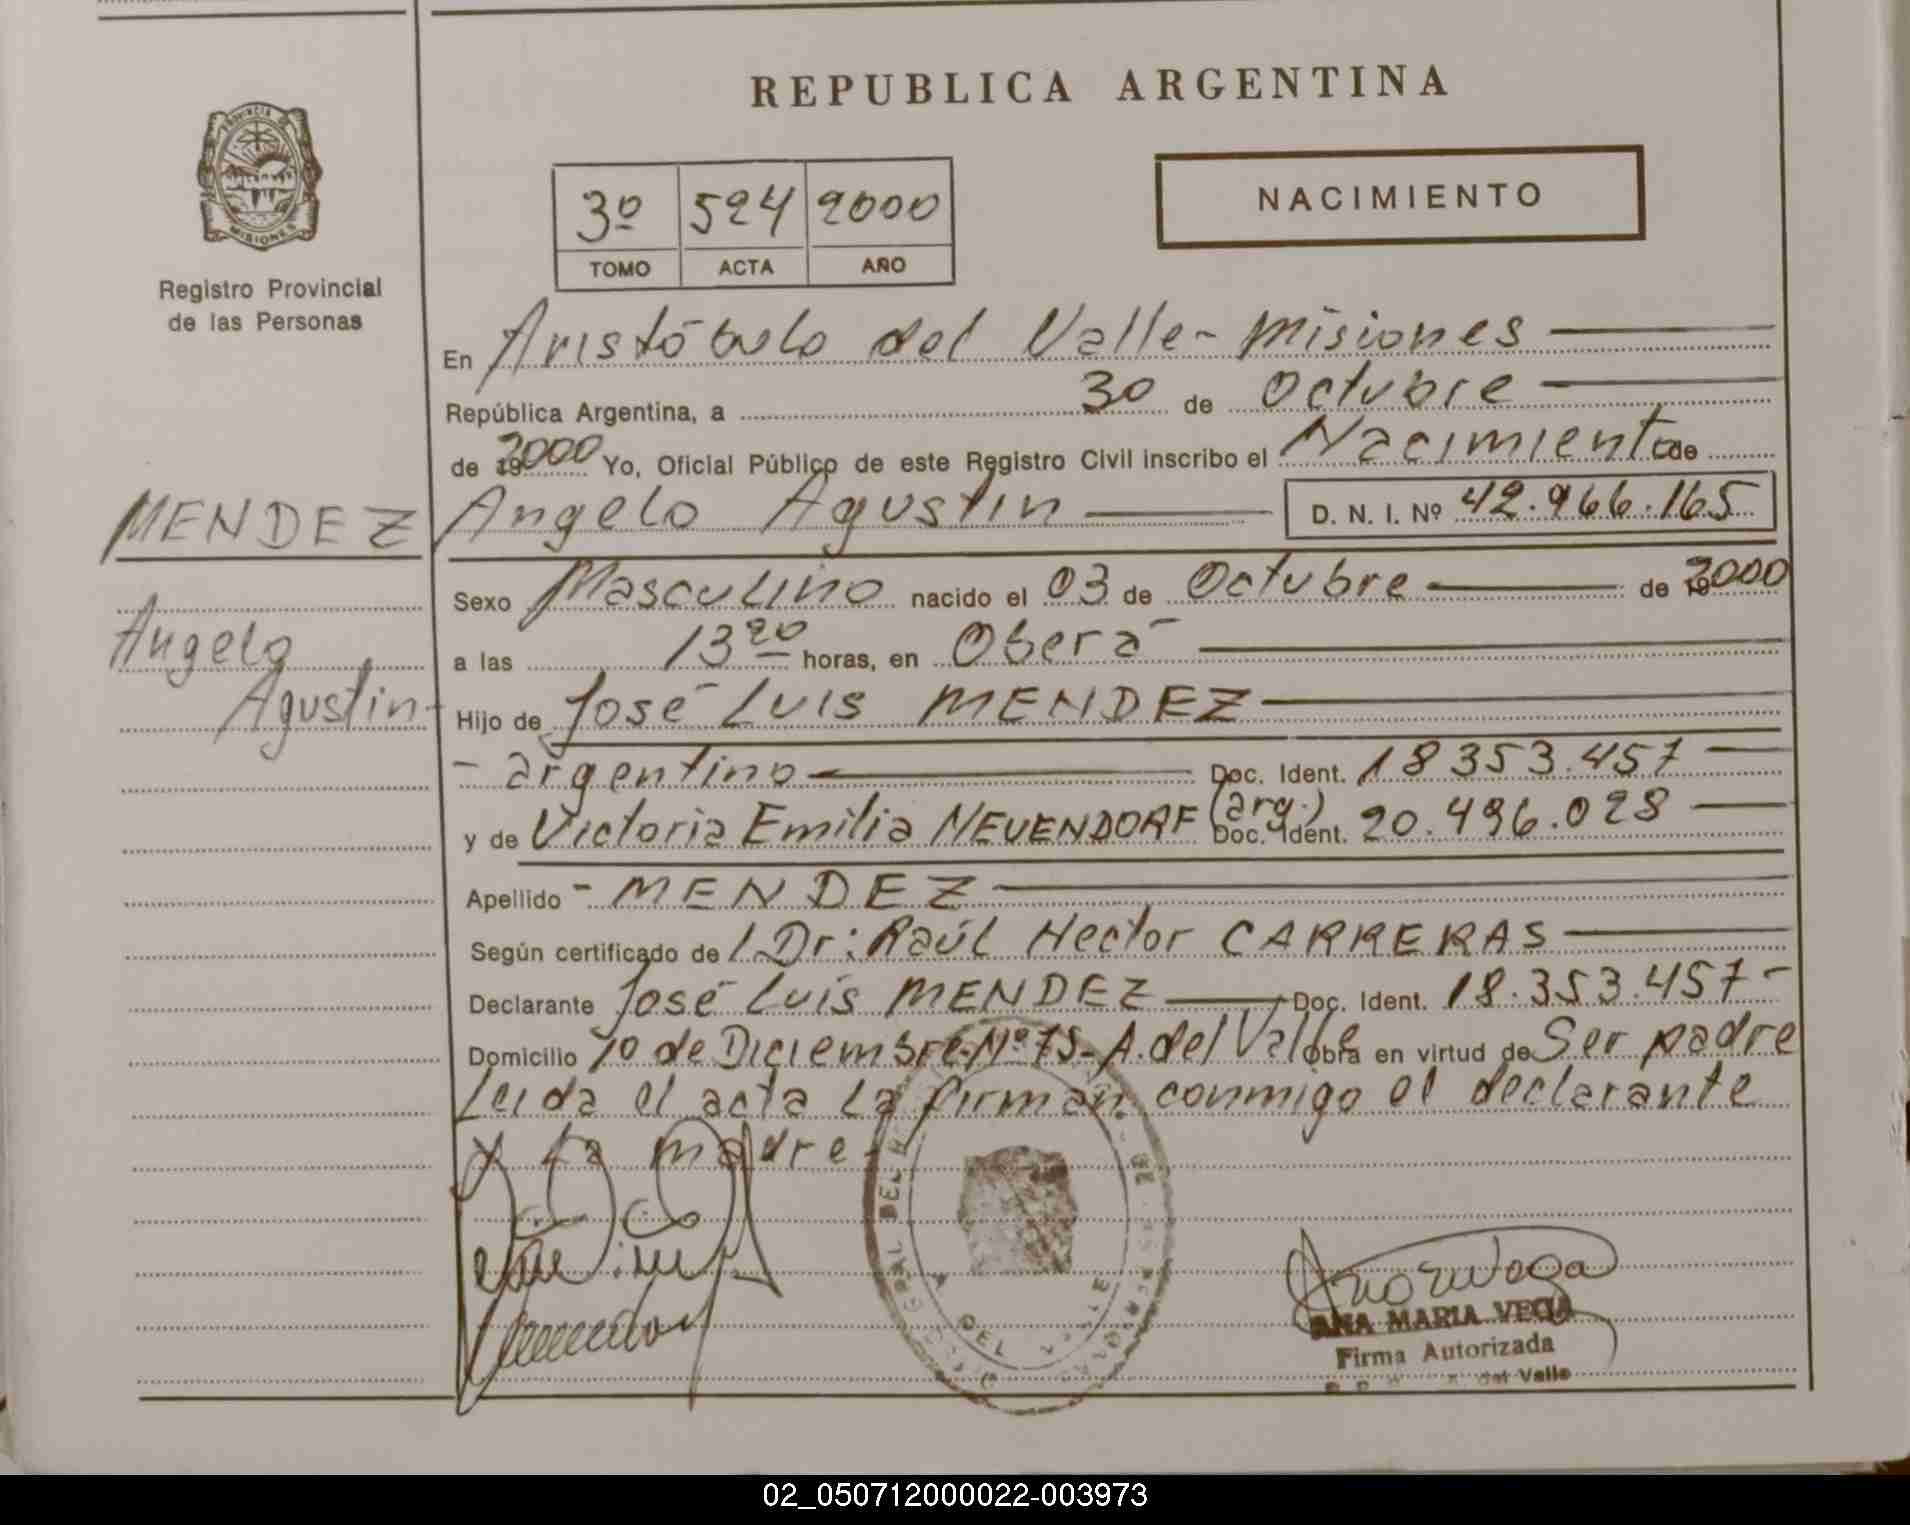 PROVINCIA DE
MISIONES
Registro Provincial
de las Personas
REPUBLICA ARGENTINA
3º 524 2000
TOMO ACTA AÑO
NACIMIENTO
En Aristóbulo del Valle - Misiones
República Argentina, a 30 de Octubre
de 2000 Yo, Oficial Público de este Registro Civil inscribo el Nacimiento de
MENDEZ
Angelo Agustin
Angelo Agustin D. N. I. Nº 42.966.165
Sexo Masculino nacido el 03 de Octubre de 2000
a las 13 20 horas, en Oberá
Hijo de José Luis MENDEZ
- argentino Doc. Ident. 18 353.457
y de Victoria Emilia NEUENDORF (arg.) Doc. Ident. 20.496.028
Apellido - MENDEZ
Según certificado de Dr: Raúl Hector CARRERAS
Declarante José Luis MENDEZ Doc. Ident. 18.353.457 -
Domicilio 10 de Diciembre - Nº 75 - A. del Valle Obra en virtud de Ser padre
Leida el acta la firman conmigo el declarante
y la madre -
ANA MARIA VEGA
Firma Autorizada
del Valle
02_050712000022-003973